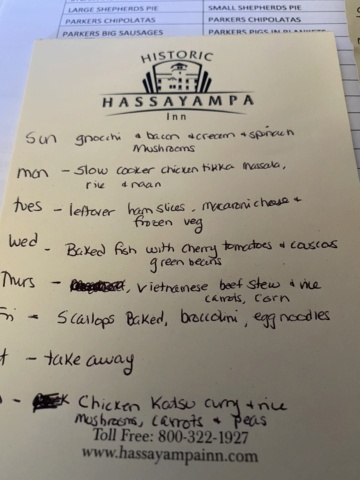 LARGE SHEPHERDS PIE SMALL SHEPHERDS PIE
PARKERS CHIPOLATAS PARKERS CHIPOLATAS
PARKERS BIG SAUSAGES PARKERS PIGS IN BLANKETS
HISTORIC
HASSAYAMPA
Inn
Sun gnocchi & bacon & cream & spinach
Mushrooms
mon - Slow cooker chicken tikka masala,
rice & naan
tues - leftover ham slices, macaroni cheese &
frozen veg
Wed - Baked fish with cherry tomatoes & couscous
green beans
Thurs - , Vietnamese beef stew & rice
carrots, corn
Fri - Scallops Baked, broccolini, egg noodles
t - take away
- Chicken Katsu curry & rice
mushrooms, carrots & peas
Toll Free: 800-322-1927
www.hassayampainn.com